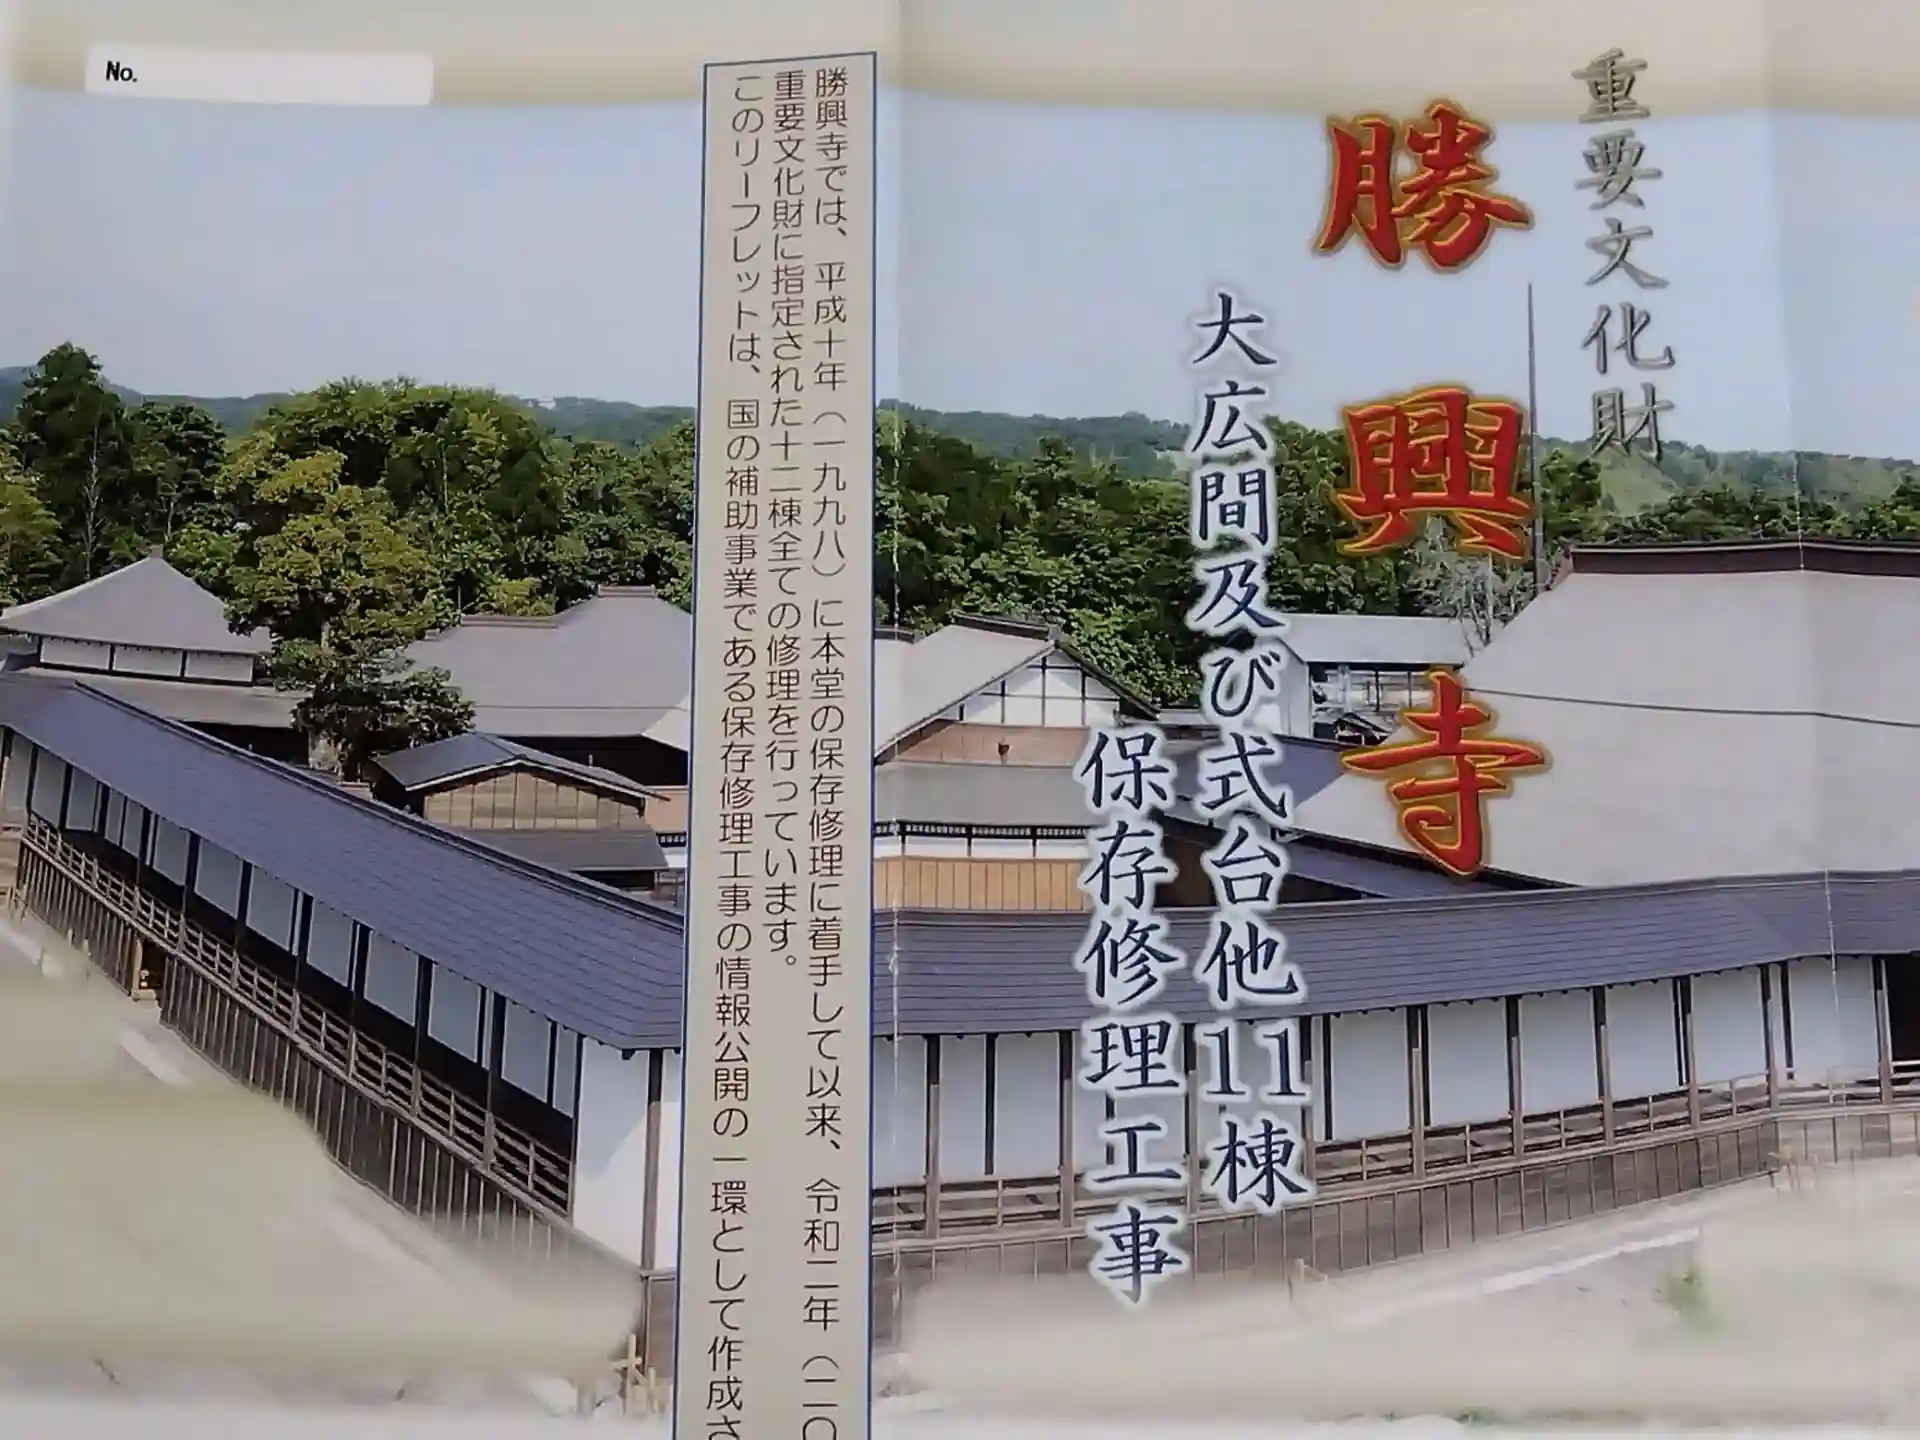 重要文化財
勝興寺
大広間及び式台他11棟
保存修理工事
勝興寺では、平成十年（一九九八）に本堂の保存修理に着手して以来、令和二年（二〇
重要文化財に指定された十二棟全ての修理を行っています。
このリーフレットは、国の補助事業である保存修理工事の情報公開の一環として作成さ
No.